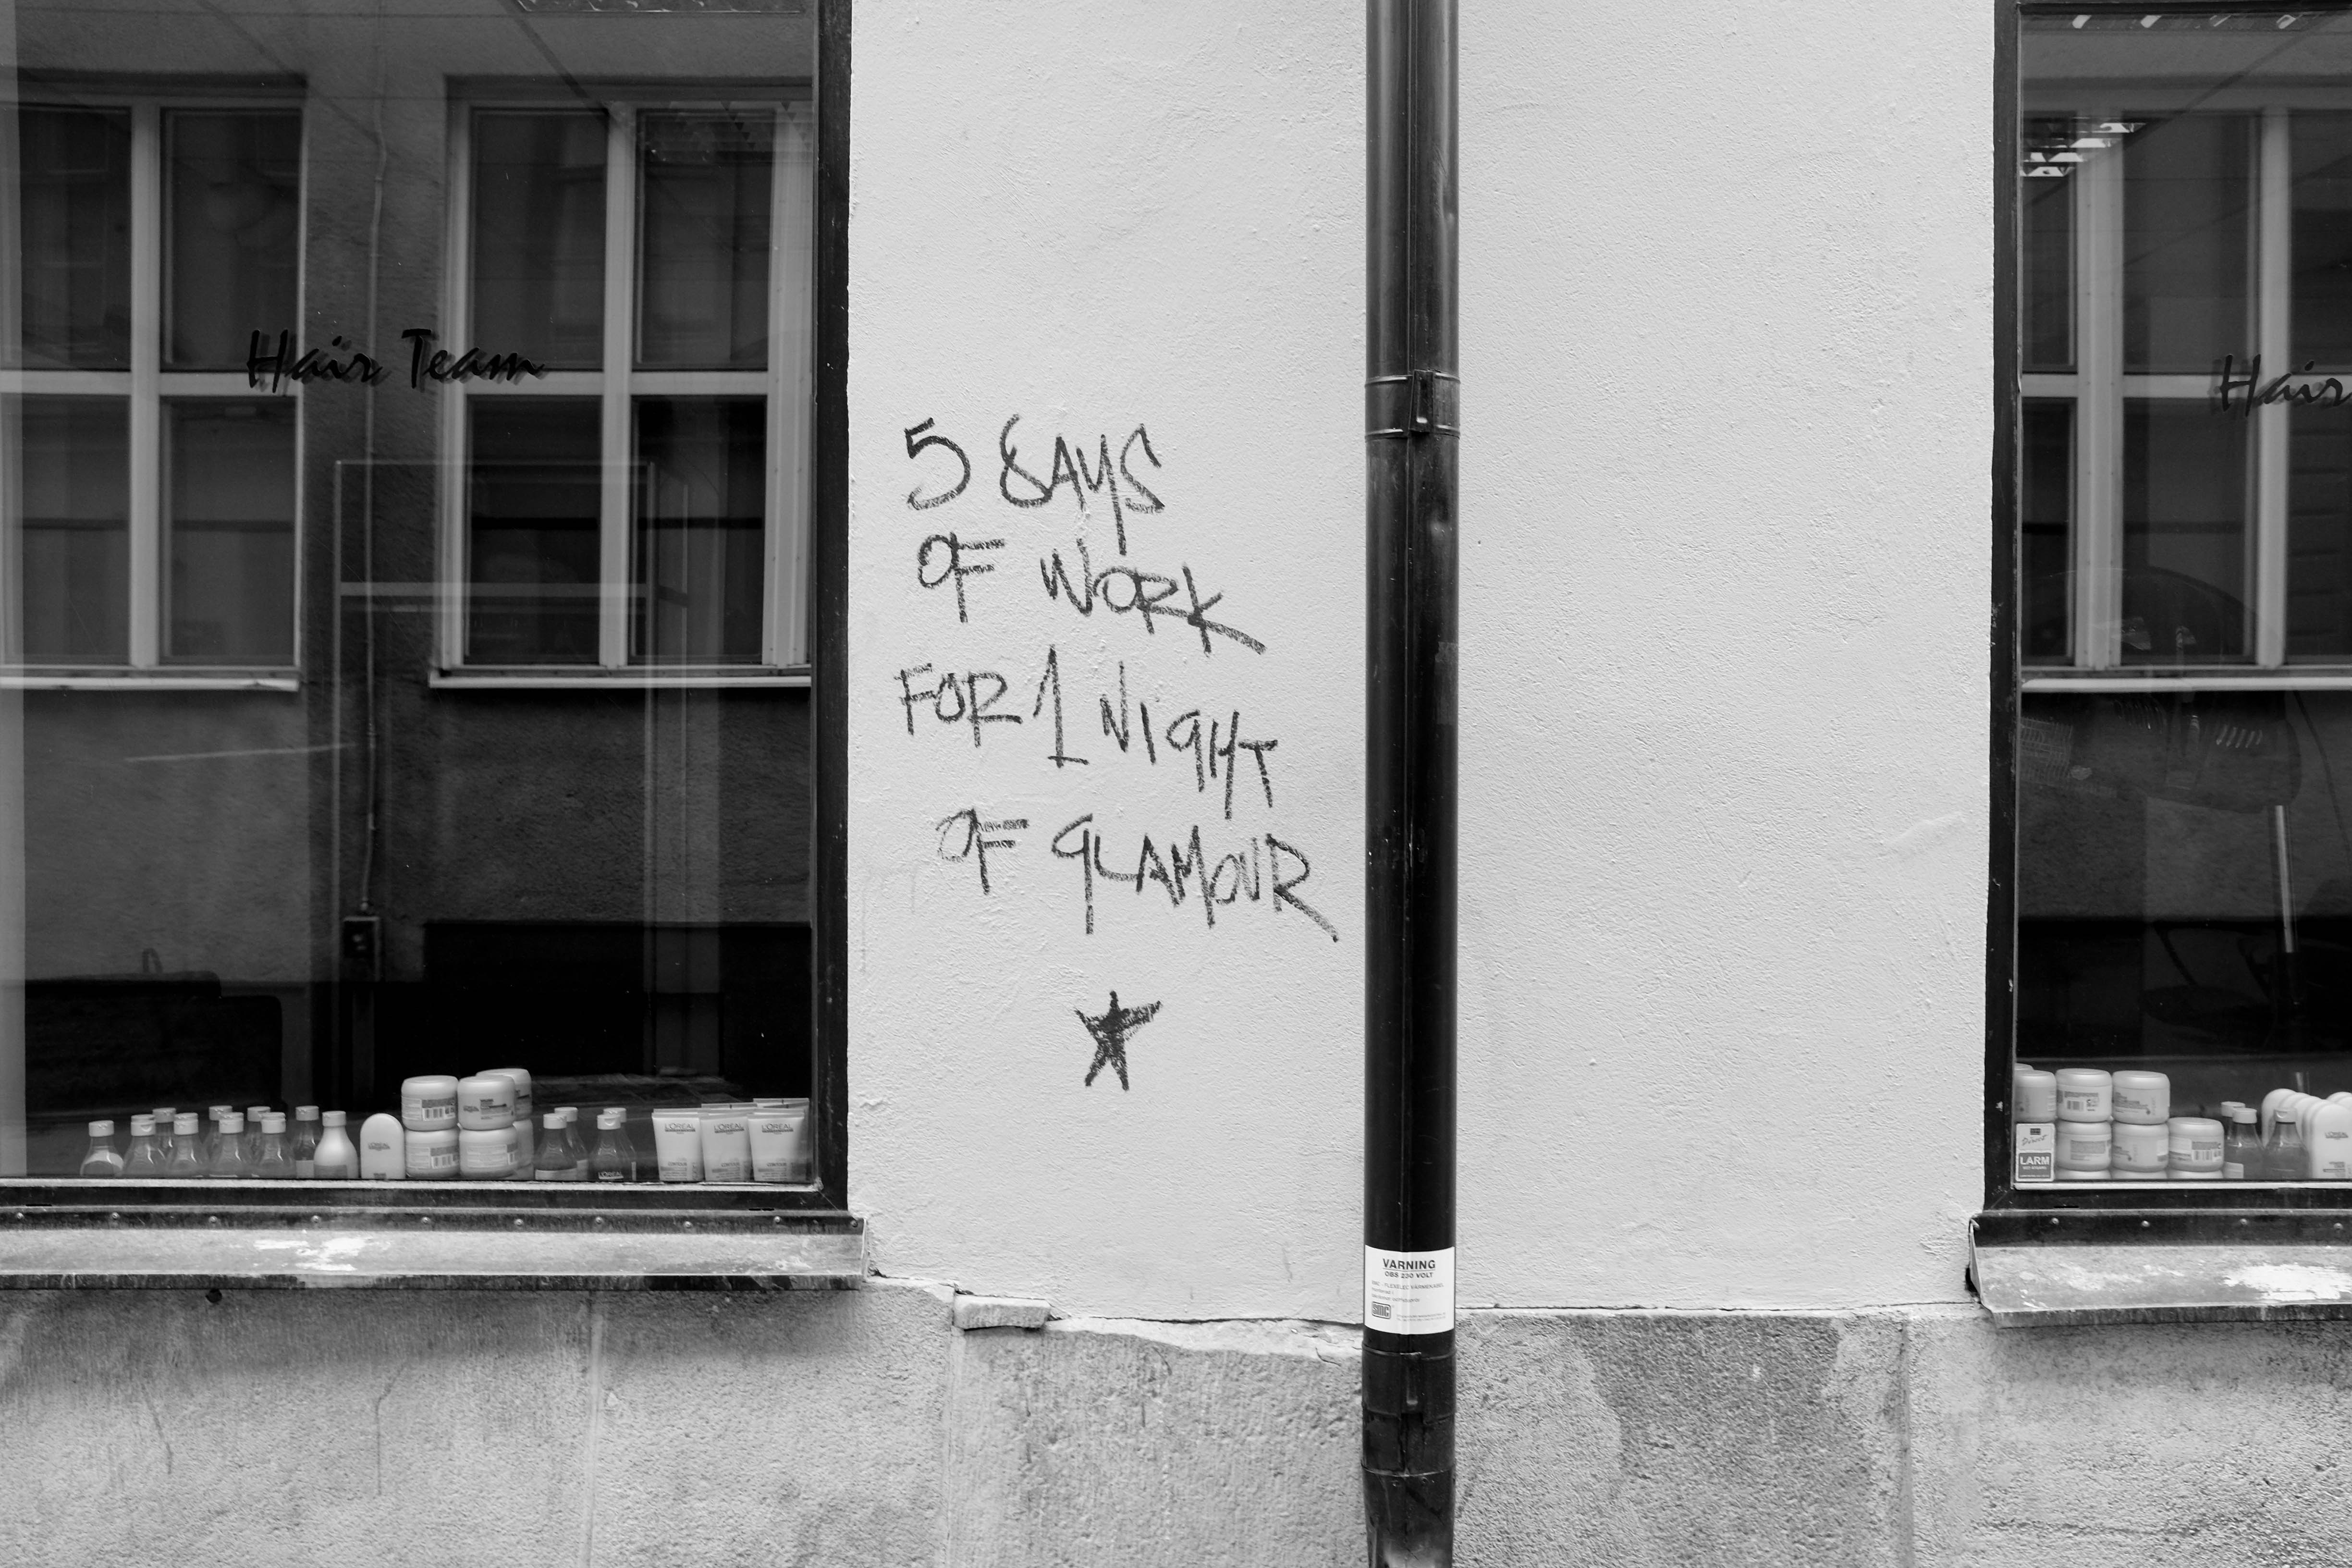 Hair Team
Hair
5 DAYS
OF WORK
FOR 1 NIGHT
OF GLAMOUR
L'ORÉAL
L'ORÉAL
L'ORÉAL
LARM
VARNING
OBS 230 VOLT